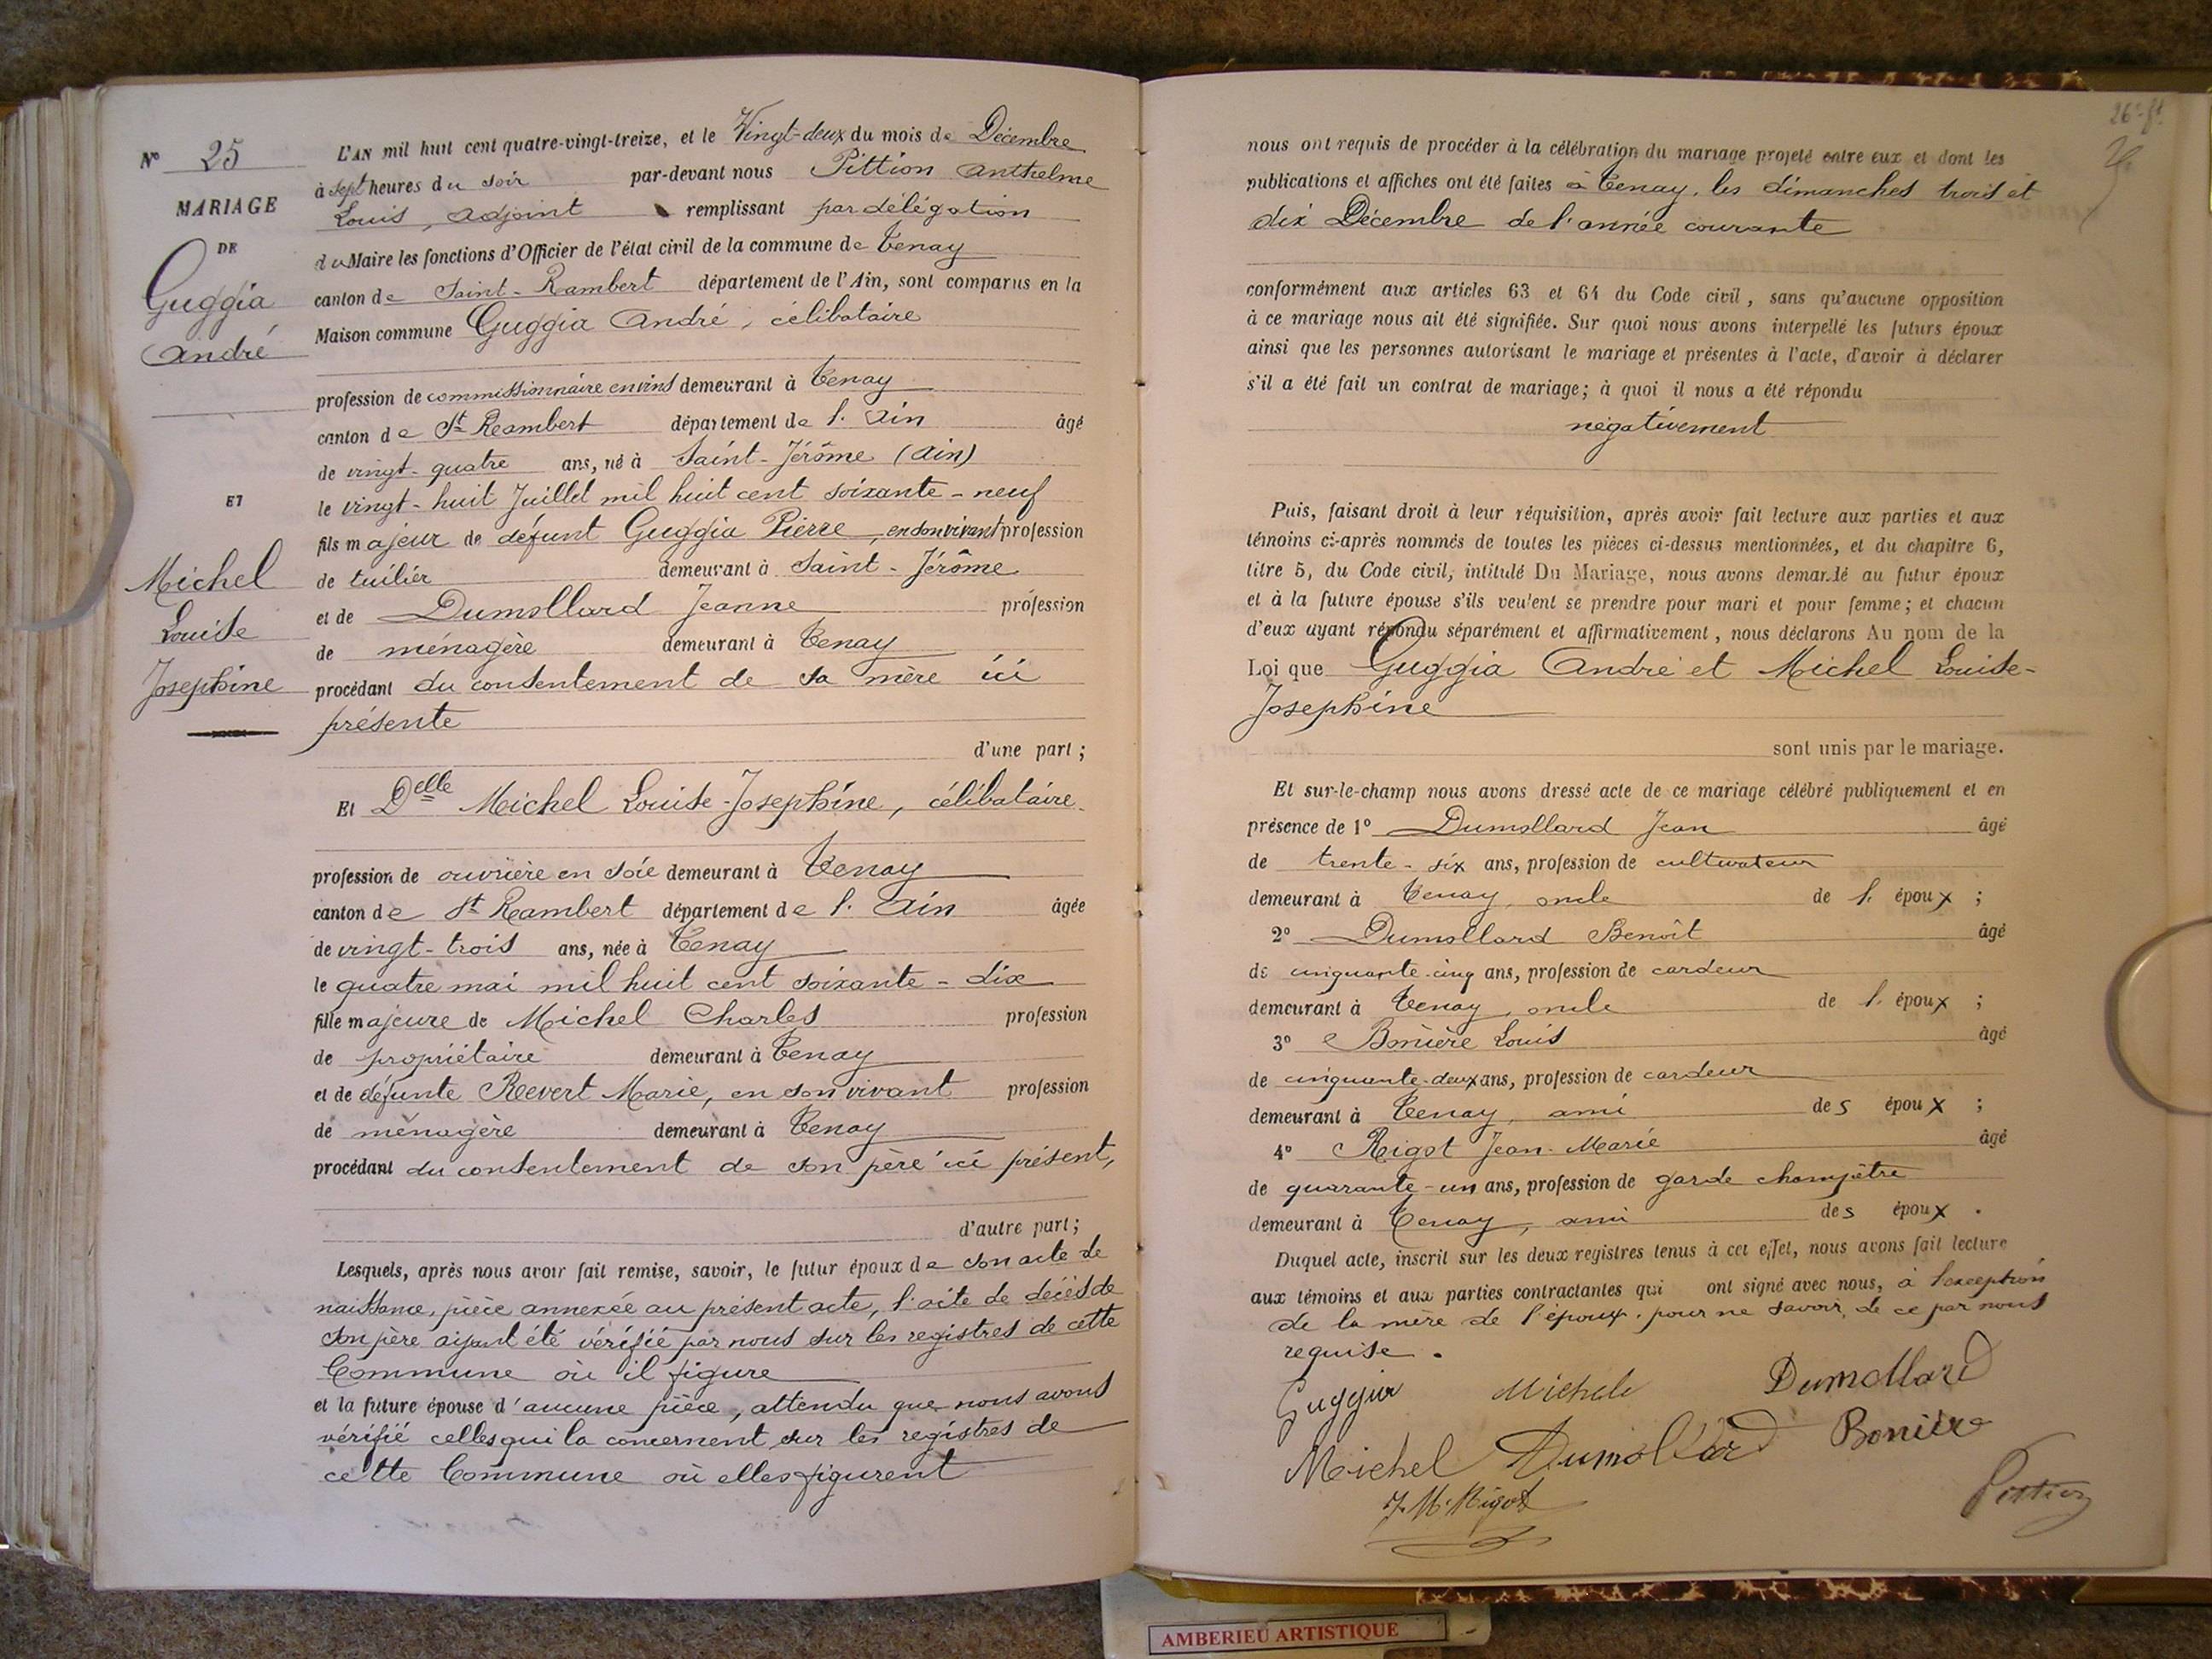 N° 25
MARIAGE
DE
Guggia
André
ET
Michel
Louise
Joséphine
L'AN mil huit cent quatre-vingt-treize, et le Vingt-deux du mois de Décembre
à sept heures du soir par-devant nous Pittion Anthelme
Louis, adjoint remplissant par délégation
du Maire les fonctions d'Officier de l'état civil de la commune de Tenay
canton de Saint-Rambert département de l'Ain, sont comparus en la
Maison commune Guggia André, célibataire
profession de commissionnaire en vins demeurant à Tenay
canton de St Rambert département de l'Ain âgé
de vingt-quatre ans, né à Saint-Jérôme (Ain)
le vingt-huit Juillet mil huit cent soixante-neuf
fils majeur de défunt Guggia Pierre, en son vivant profession
de tuilier demeurant à Saint-Jérôme
et de Dumollard Jeanne profession
de ménagère demeurant à Tenay
procédant du consentement de sa mère ici
présente
d'une part ;
Et Delle Michel Louise-Joséphine, célibataire
profession de ouvrière en soie demeurant à Tenay
canton de St Rambert département de l'Ain âgée
de vingt-trois ans, née à Tenay
le quatre mai mil huit cent soixante-dix
fille majeure de Michel Charles profession
de propriétaire demeurant à Tenay
et de défunte Revert Marie, en son vivant profession
de ménagère demeurant à Tenay
procédant du consentement de son père ici présent,
d'autre part ;
Lesquels, après nous avoir fait remise, savoir, le futur époux de son acte de
naissance, pièce annexée au présent acte, l'acte de décès de
son père ayant été vérifié par nous sur les registres de cette
Commune où il figure
et la future épouse d'aucune pièce, attendu que nous avons
vérifié celles qui la concernent sur les registres de
cette Commune où elles figurent
26e ft
nous ont requis de procéder à la célébration du mariage projeté entre eux et dont les
publications et affiches ont été faites à Tenay, les dimanches trois et
dix Décembre de l'année courante
conformément aux articles 63 et 64 du Code civil, sans qu'aucune opposition
à ce mariage nous ait été signifiée. Sur quoi nous avons interpellé les futurs époux
ainsi que les personnes autorisant le mariage et présentes à l'acte, d'avoir à déclarer
s'il a été fait un contrat de mariage; à quoi il nous a été répondu
négativement
Puis, faisant droit à leur réquisition, après avoir fait lecture aux parties et aux
témoins ci-après nommés de toutes les pièces ci-dessus mentionnées, et du chapitre 6,
titre 5, du Code civil, intitulé Du Mariage, nous avons demandé au futur époux
et à la future épouse s'ils veulent se prendre pour mari et pour femme; et chacun
d'eux ayant répondu séparément et affirmativement, nous déclarons Au nom de la
Loi que Guggia André et Michel Louise-
Joséphine
sont unis par le mariage.
Et sur-le-champ nous avons dressé acte de ce mariage célébré publiquement et en
présence de 1° Dumollard Jean âgé
de trente-six ans, profession de cultivateur
demeurant à Tenay, oncle de l'époux ;
2° Dumollard Benoît âgé
de cinquante-cinq ans, profession de cardeur
demeurant à Tenay, oncle de l'époux ;
3° Bonière Louis âgé
de cinquante-deux ans, profession de cardeur
demeurant à Tenay, ami des époux ;
4° Rigot Jean-Marie âgé
de quarante-un ans, profession de garde champêtre
demeurant à Tenay, ami des époux .
Duquel acte, inscrit sur les deux registres tenus à cet effet, nous avons fait lecture
aux témoins et aux parties contractantes qui ont signé avec nous, à l'exception
de la mère de l'époux, pour ne savoir, de ce par nous
requise.
Guggia Michel Dumollard
Michel Dumollard Bonière
J. M. Rigot Pittion
AMBERIEU ARTISTIQUE